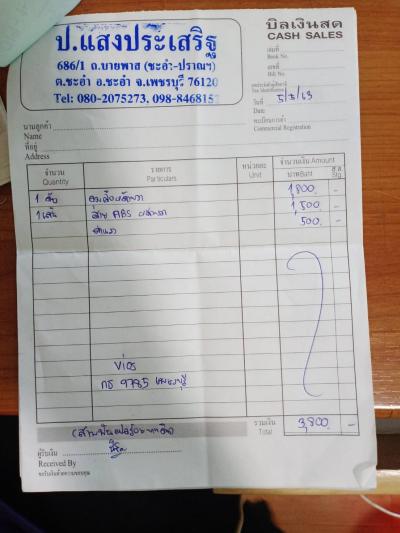 ป.แสงประเสริฐ
686/1 ถ.บายพาส (ชะอำ-ปราณฯ)
ต.ชะอำ อ.ชะอำ จ.เพชรบุรี 76120
Tel: 080-2075273, 098-8468157
บิลเงินสด
CASH SALES
เล่มที่
Book No.
เลขที่
Bill No.
วันที่ 5/3/63
Date
ทะเบียนการค้า
Commercial Registration
นามลูกค้า
Name
ที่อยู่
Address
จำนวน รายการ หน่วยละ จำนวนเงิน Amount
Quantity Particulars Unit บาท Baht ส.ต. Stg.
1 ตัว 1,800. -
1 เส้น สาย ABS 1,500 -
ค่าแรง 500. -
Vios
กร 9785 เพชรบุรี
รวมเงิน 3,800. -
Total
(สามพันแปดร้อยบาทถ้วน)
ผู้รับเงิน
Received By
ขอรับเงินด้วยความขอบคุณ